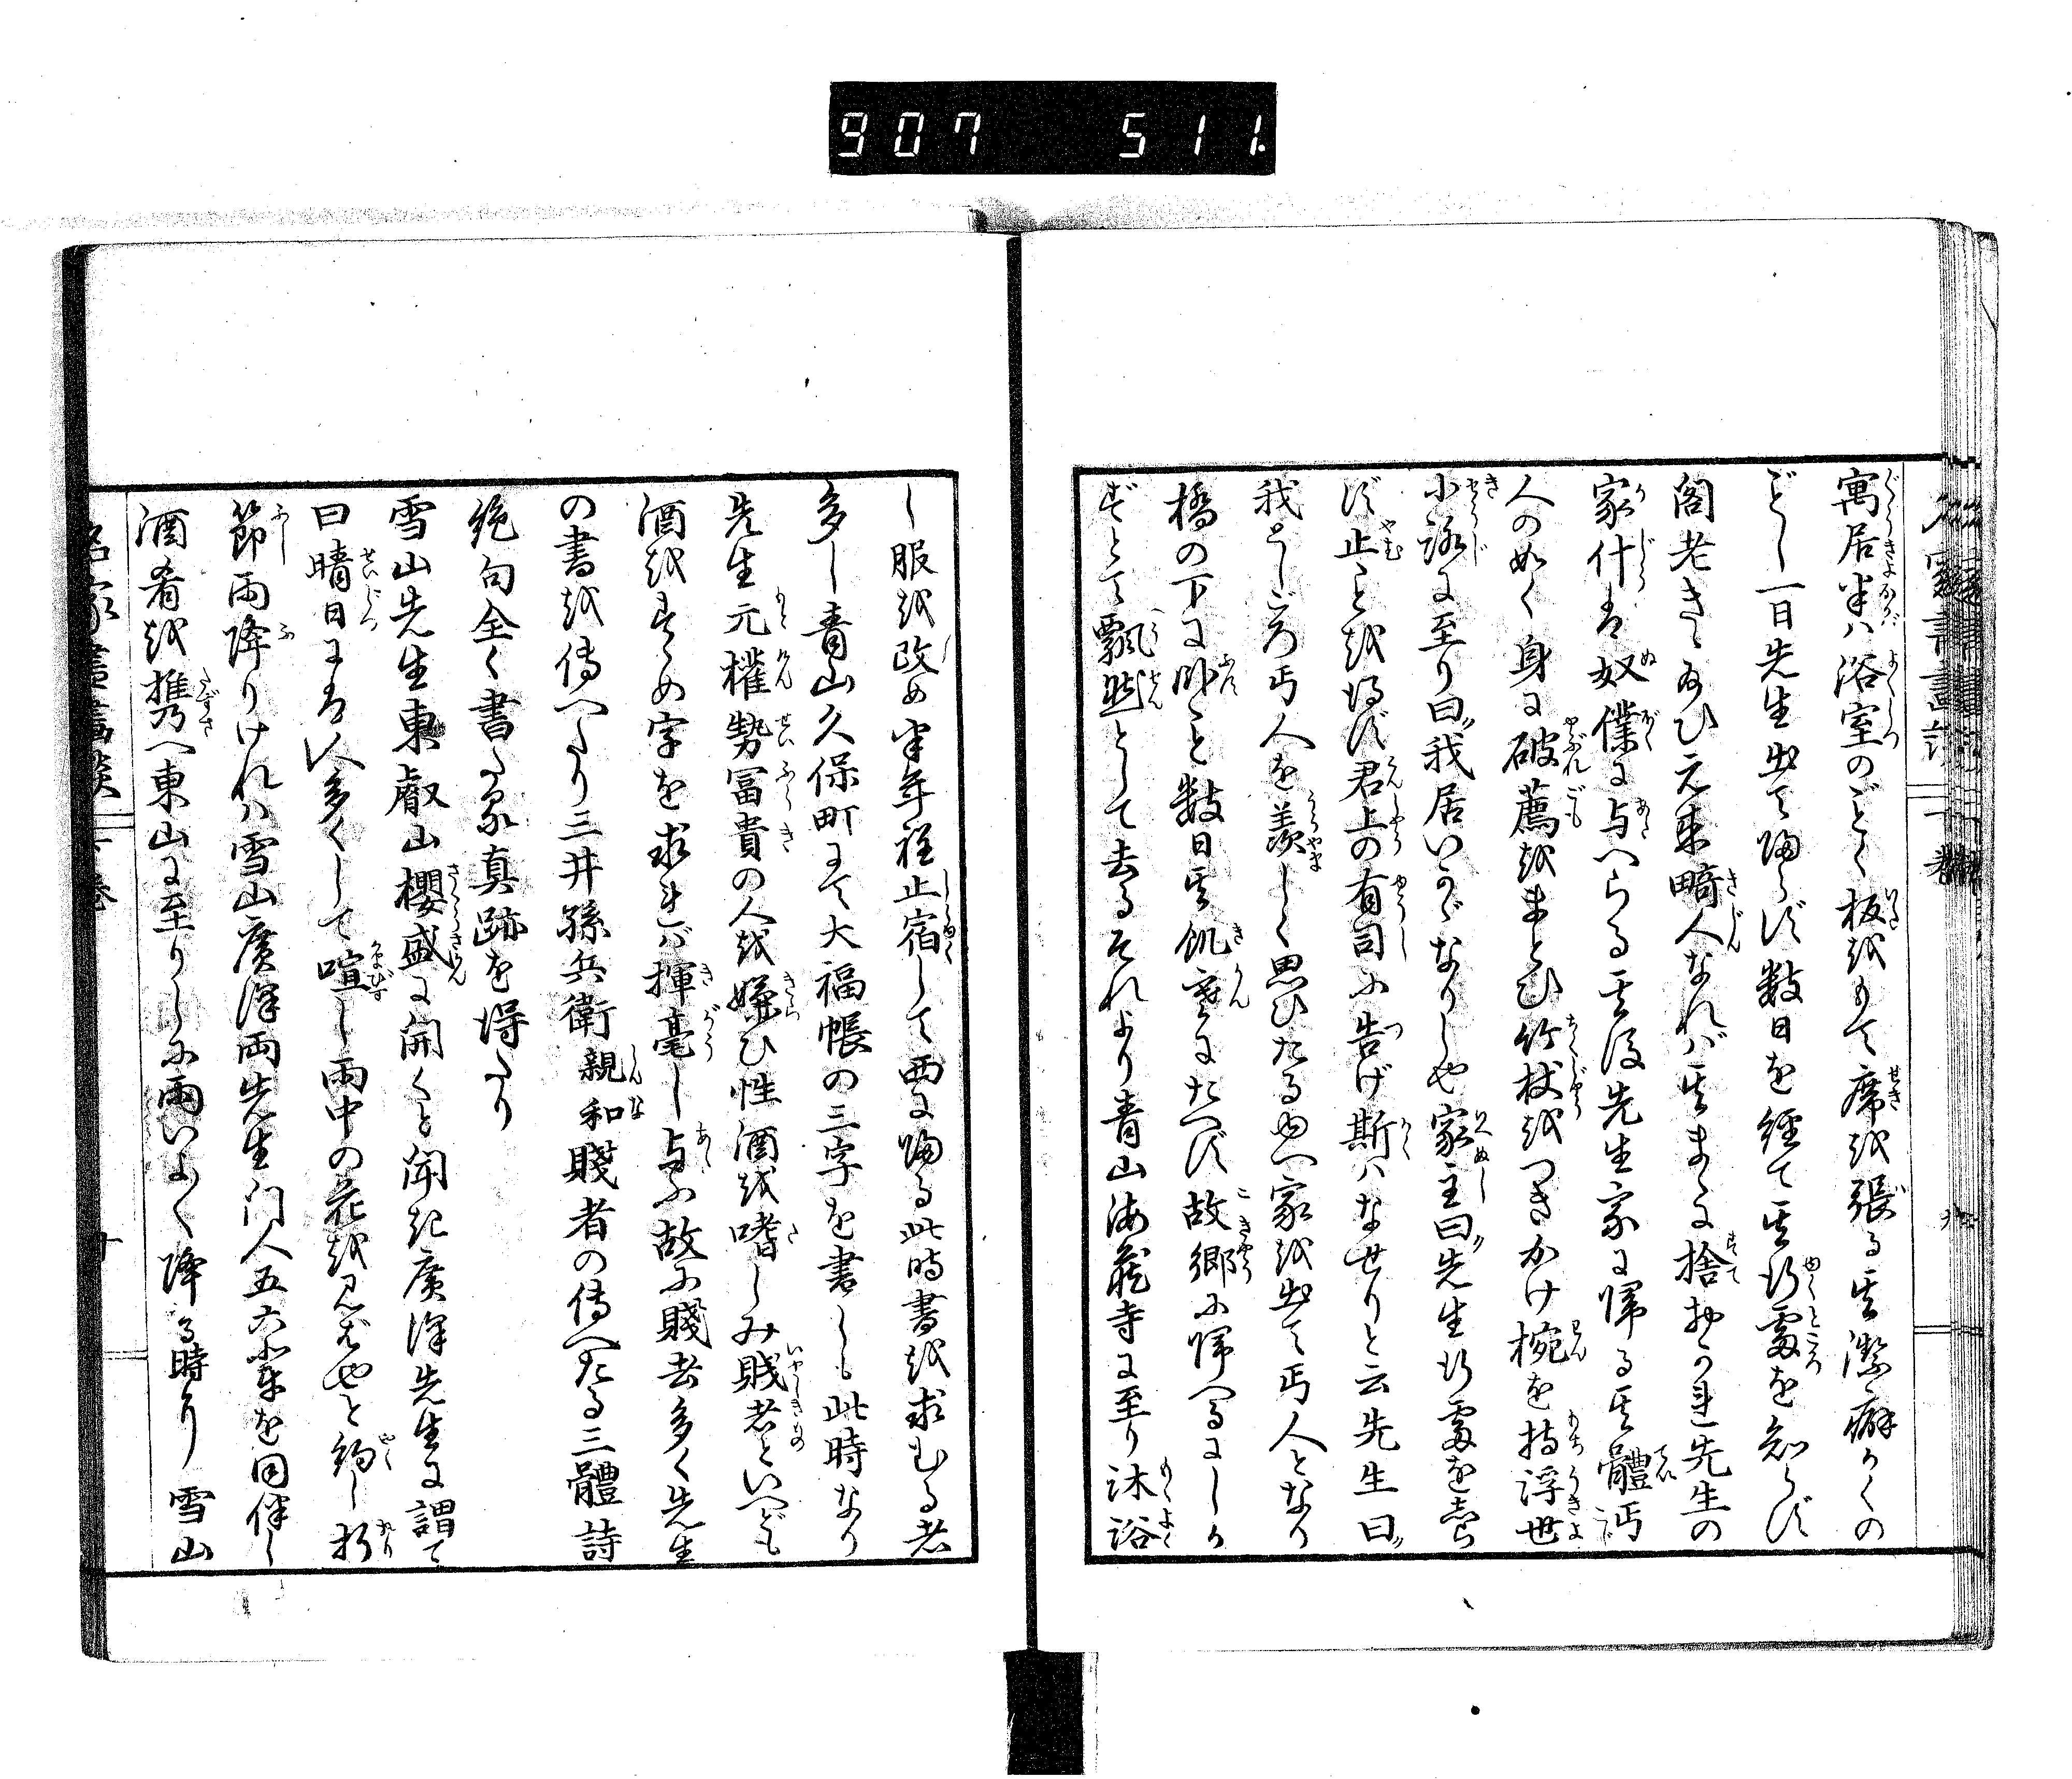 907 511.
寓居半ハ浴室のごとく板を以て席を張る其潔癖かくの
ごとし一日先生出て帰らず数日を経て其行處を知らず
閣老きゝ玉ひ元来畸人なれバ其まゝに捨おかれ先生の
家什は奴僕に与へらる其後先生家に帰る其體丐
人の如く身に破薦をまとひ竹杖をつきかけ椀を持浮世
小路に至り曰我居いかゞなりしや家主曰先生行處を知ら
ず止ことを得ず君上の有司に告げ斯ハなせりと云先生曰
我としごろ丐人を羨しく思ひたるゆへ家を出て丐人となり
橋の下に臥こと数日其飢寒にたへず故郷に帰へるにしか
ずとて飄然として去るそれより青山海蔵寺に至り沐浴
し服を改め半年程止宿して西に帰る此時書を求むる者
多し青山久保町にて大福帳の三字を書しも此時なり
先生元権勢富貴の人を嫌ひ性酒を嗜しみ賎者といへども
酒をすゝめ字を求れバ揮毫し与ふ故に賤者多く先生
の書を傳へたり三井孫兵衛親和賤者の傳へたる三體詩
絶句全く書たる真跡を得たり
雪山先生東叡山櫻盛に開くと聞き廣澤先生に謂て
曰晴日には人多くして喧し雨中の花を見ばやと約し折
節雨降りけれハ雪山廣澤両先生门人五六輩を同伴し
酒肴を携へ東山に至りしに雨いよ〱降る時に雪山